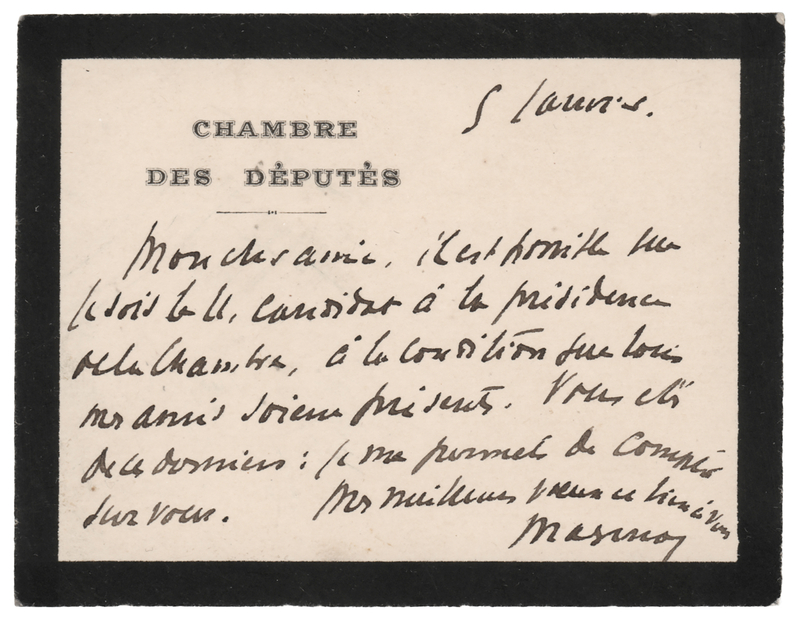 5 Janvier.
CHAMBRE
DES DÉPUTÉS
Mon cher ami, il est possible que
je sois le 11, candidat à la présidence
de la Chambre, à la condition que tous
mes amis soient présents. Vous êtes
de ces derniers : je me permets de compter
sur vous. Mes meilleurs vœux et bien à vous